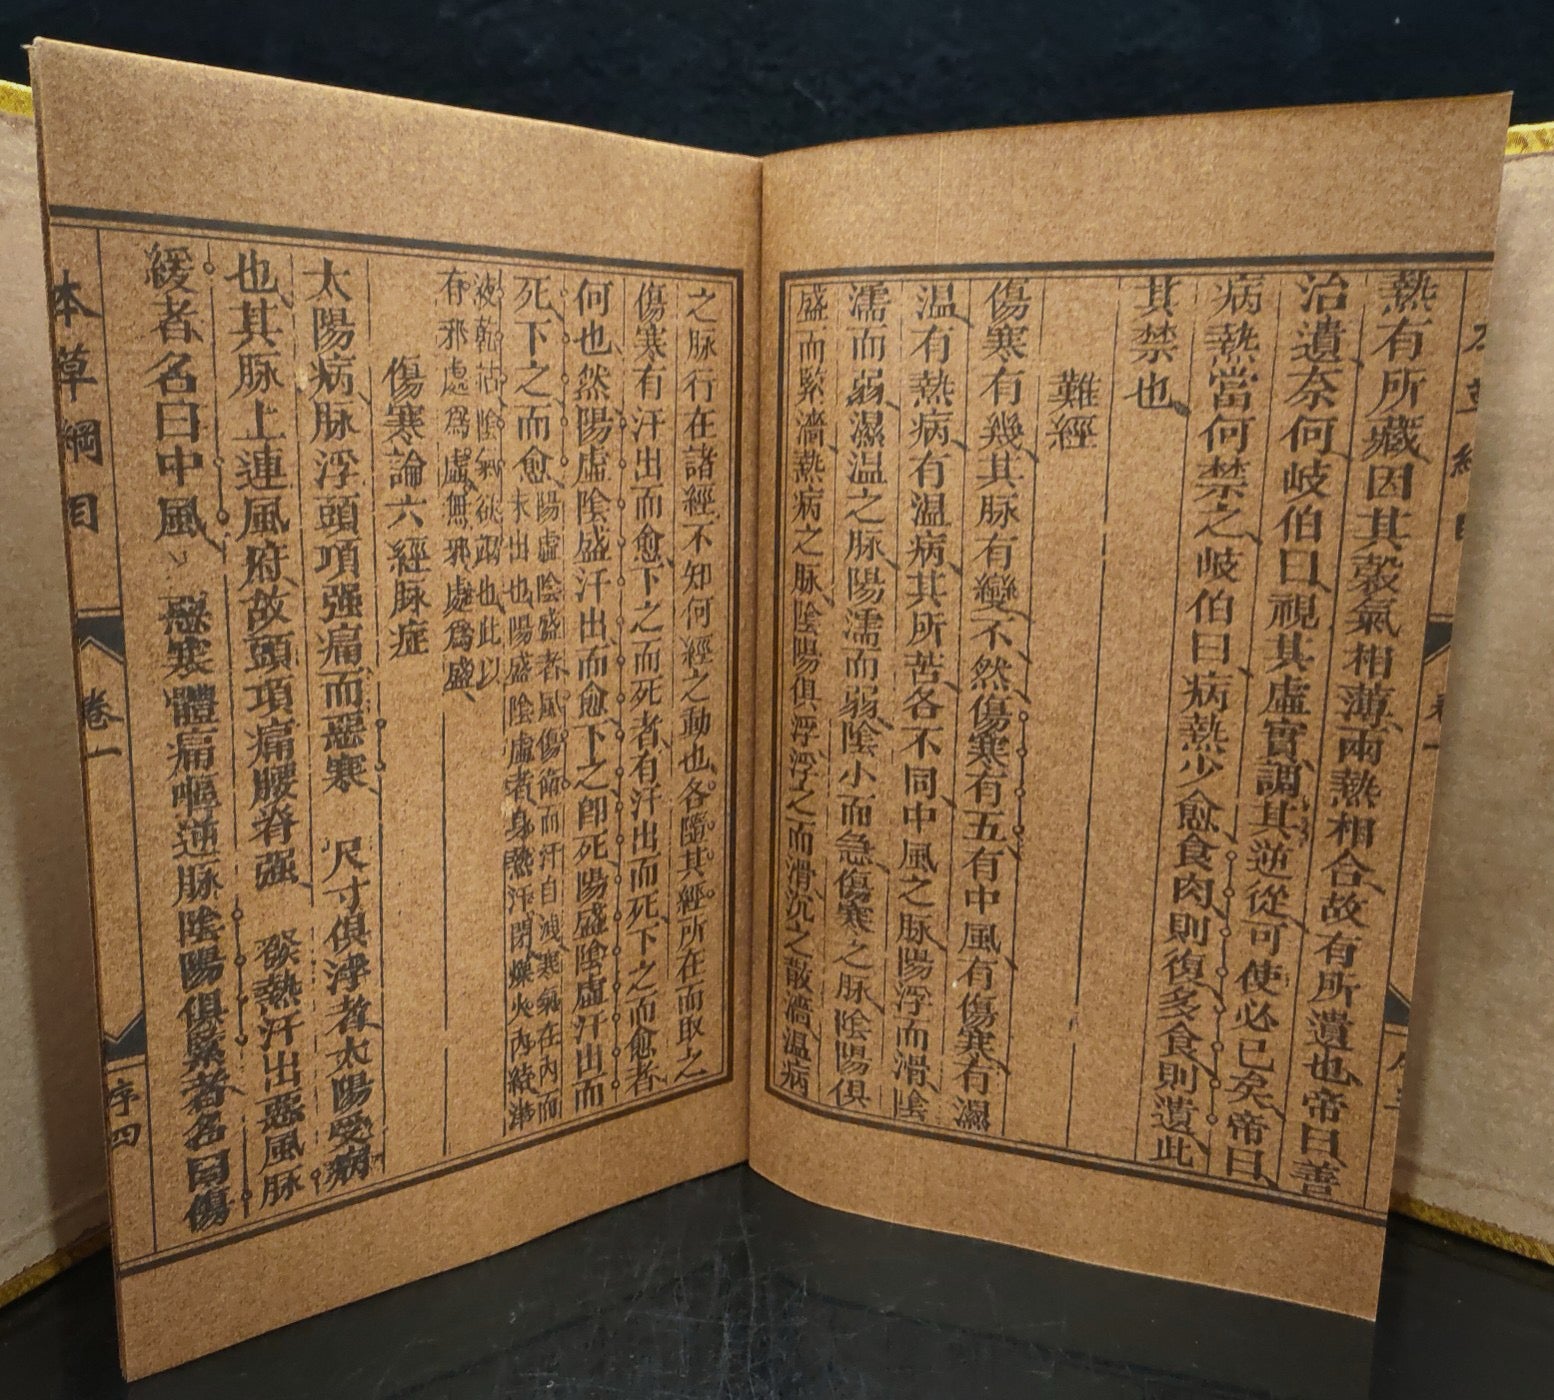 熱有所藏因其穀氣相薄兩熱相合故有所遺也帝曰善
治遺奈何岐伯曰視其虛實調其逆從可使必已矣帝曰
病熱當何禁之岐伯曰病熱少愈食肉則復多食則遺此
其禁也
難經
傷寒有幾其脉有變不然傷寒有五有中風有傷寒有濕
温有熱病有温病其所苦各不同中風之脉陽浮而滑陰
濡而弱濕温之脉陽濡而弱陰小而急傷寒之脉陰陽俱
盛而緊濇熱病之脉陰陽俱浮浮之而滑沉之散濇温病
之脉行在諸經不知何經之動也各隨其經所在而取之
傷寒有汗出而愈下之而死者有汗出而死下之而愈者
何也然陽虛陰盛汗出而愈下之卽死陽盛陰虛汗出而
死下之而愈
陽虛陰盛者風傷衛而汗自洩寒氣在內而
未出也陽盛陰虛者身熱汗閉燥火內結津
液乾枯陰氣欲竭也此以
存邪處爲虛無邪處爲盛
傷寒論六經脉症
太陽病脉浮頭項强痛而惡寒 尺寸俱浮者太陽受病
也其脉上連風府故頭項痛腰脊强 發熱汗出惡風脉
緩者名曰中風 惡寒體痛嘔逆脉陰陽俱緊者名曰傷
本草綱目
卷一
序四